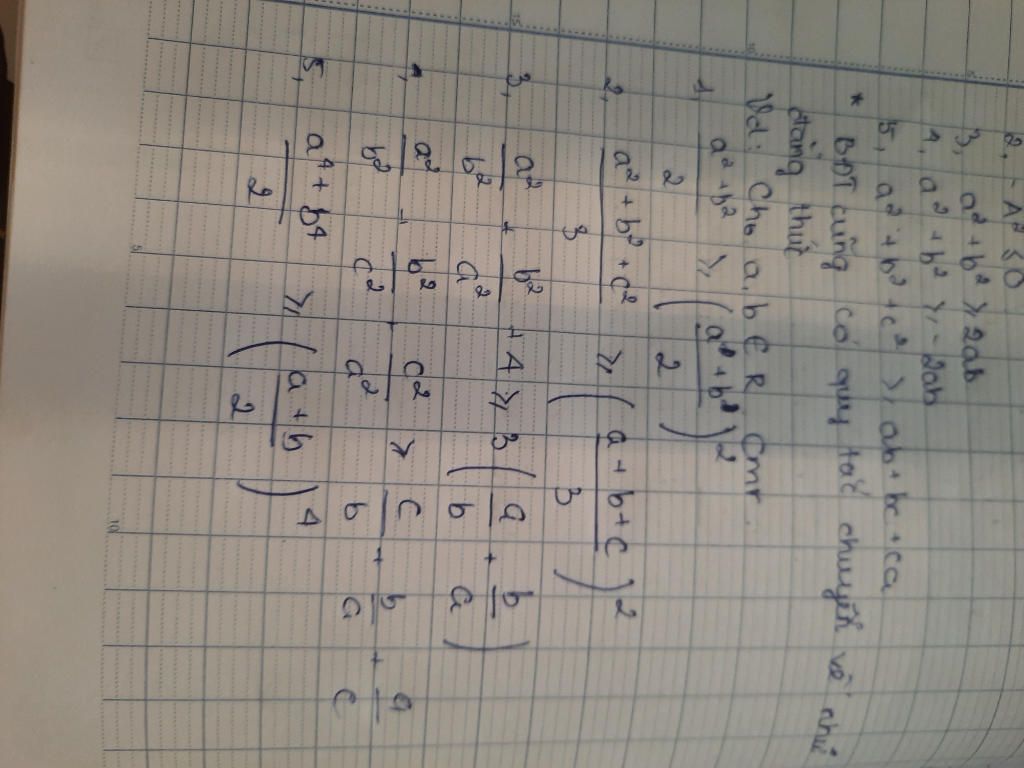 2, -A² ≤ 0
3, a² + b² ≥ 2ab
4, a² + b² ≥ -2ab
5, a² + b² + c² ≥ ab + bc + ca
* BĐT cũng có quy tắc chuyển vế như
đẳng thức
Vd: Cho a, b ∈ R Cmr
1, (a² + b²)/2 ≥ ((a + b)/2)²
2, (a² + b² + c²)/3 ≥ ((a + b + c)/3)²
3, a²/b² + b²/a² + 4 ≥ 3(a/b + b/a)
4, a²/b² + b²/c² + c²/a² ≥ c/b + b/a + a/c
5, (a⁴ + b⁴)/2 ≥ ((a + b)/2)⁴